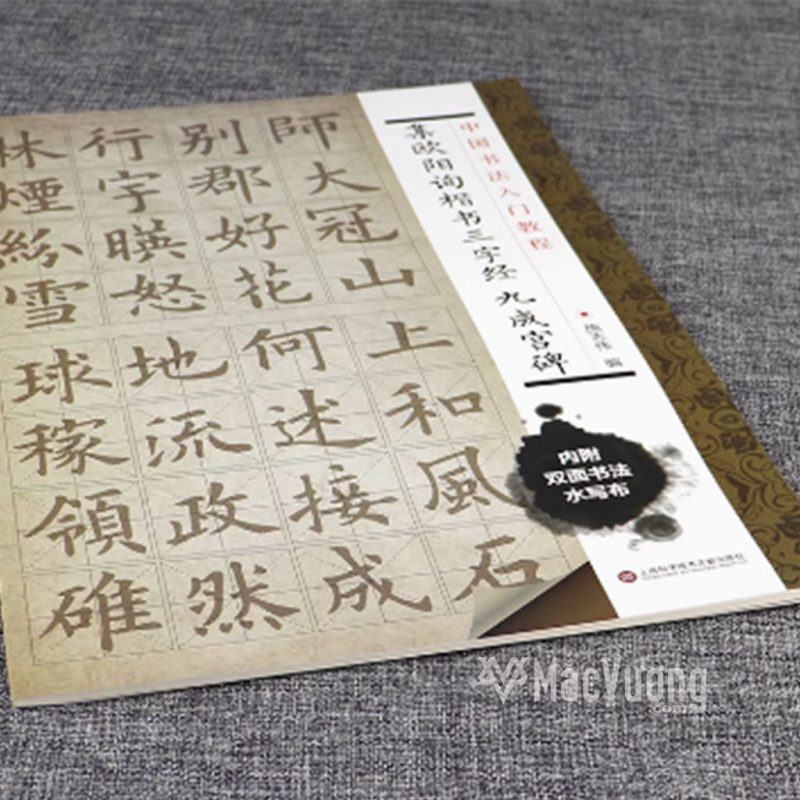 林行别師
煙宇郡大
紛暎好冠
雪怒花山
球地何上
稼流述和
領政接風
碓然成石
中国书法入门教程
集欧阳询楷书三字经 九成宫碑
编
内附
双面书法
水写布
上海科学技术文献出版社
MacVuong